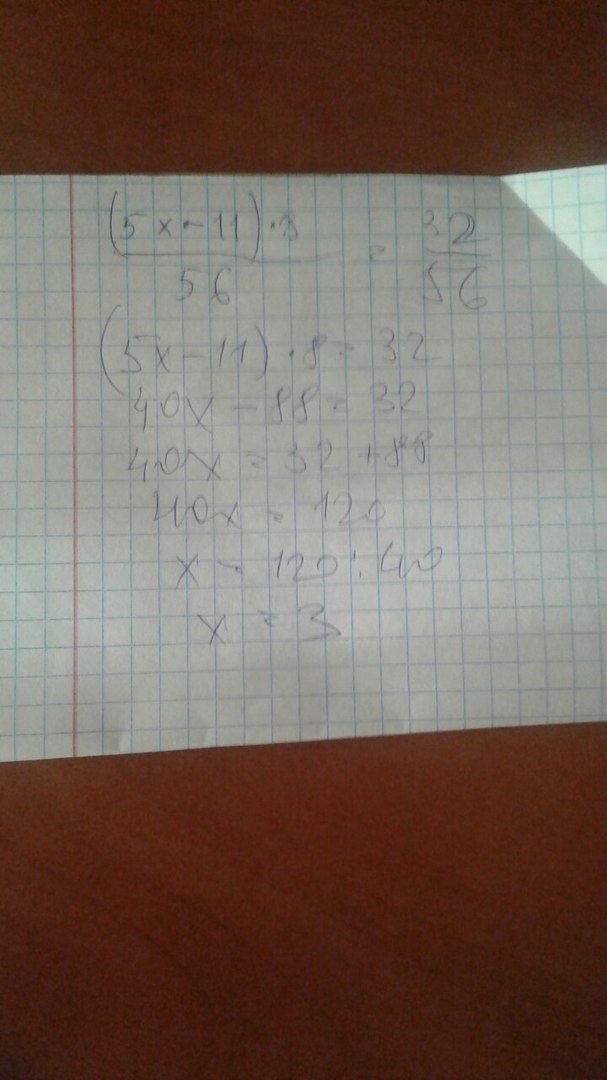 (5x-11)·8 = 32
56 56
(5x-11)·8=32
40x-88=32
40x=32+88
40x=120
x=120:40
x=3